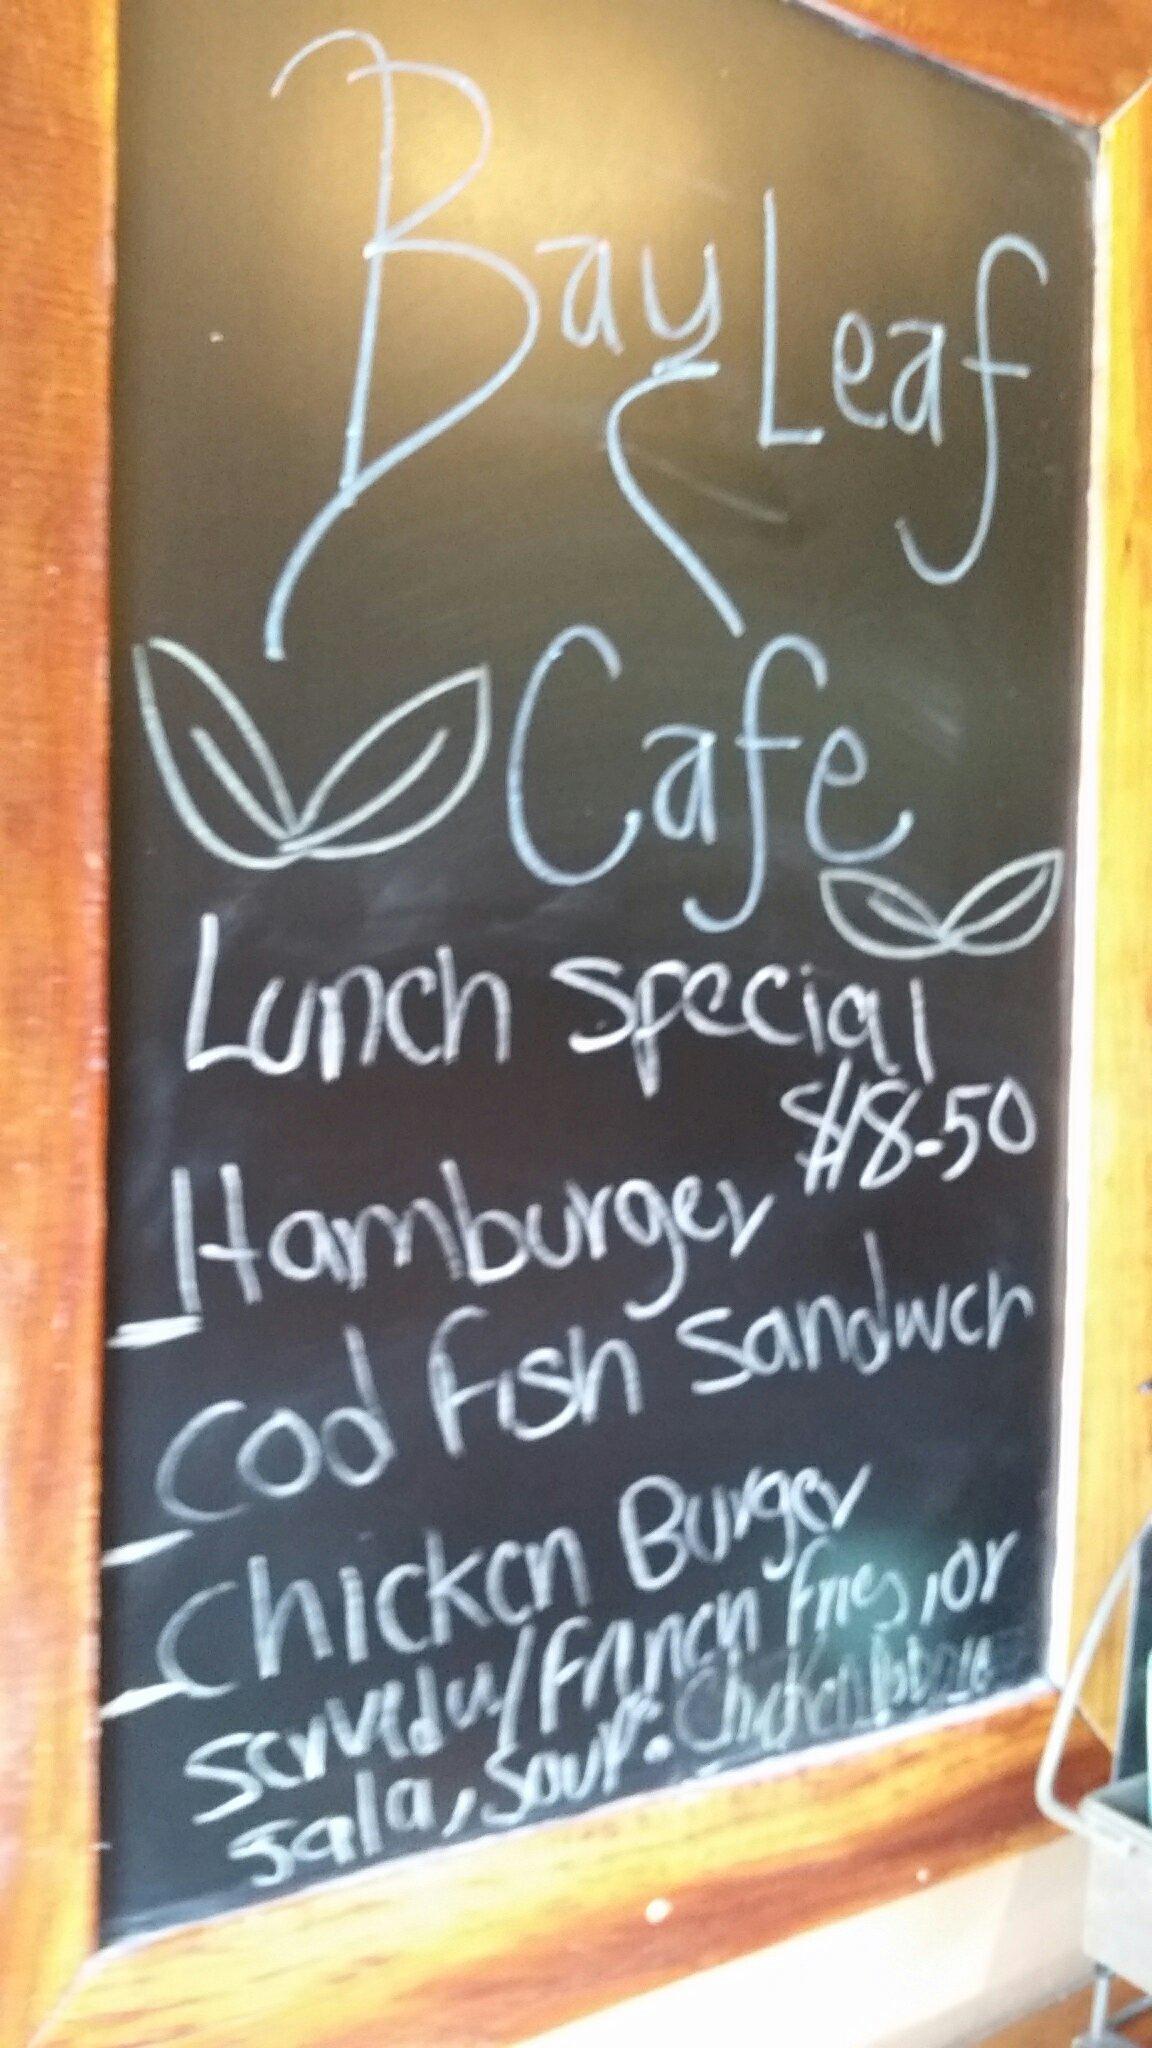 Bay Leaf
Cafe
Lunch Special
$8.50
- Hamburger
- Cod Fish Sandwch
- Chicken Burger
served w/ French Fries, or
sala, Soup. Chicken